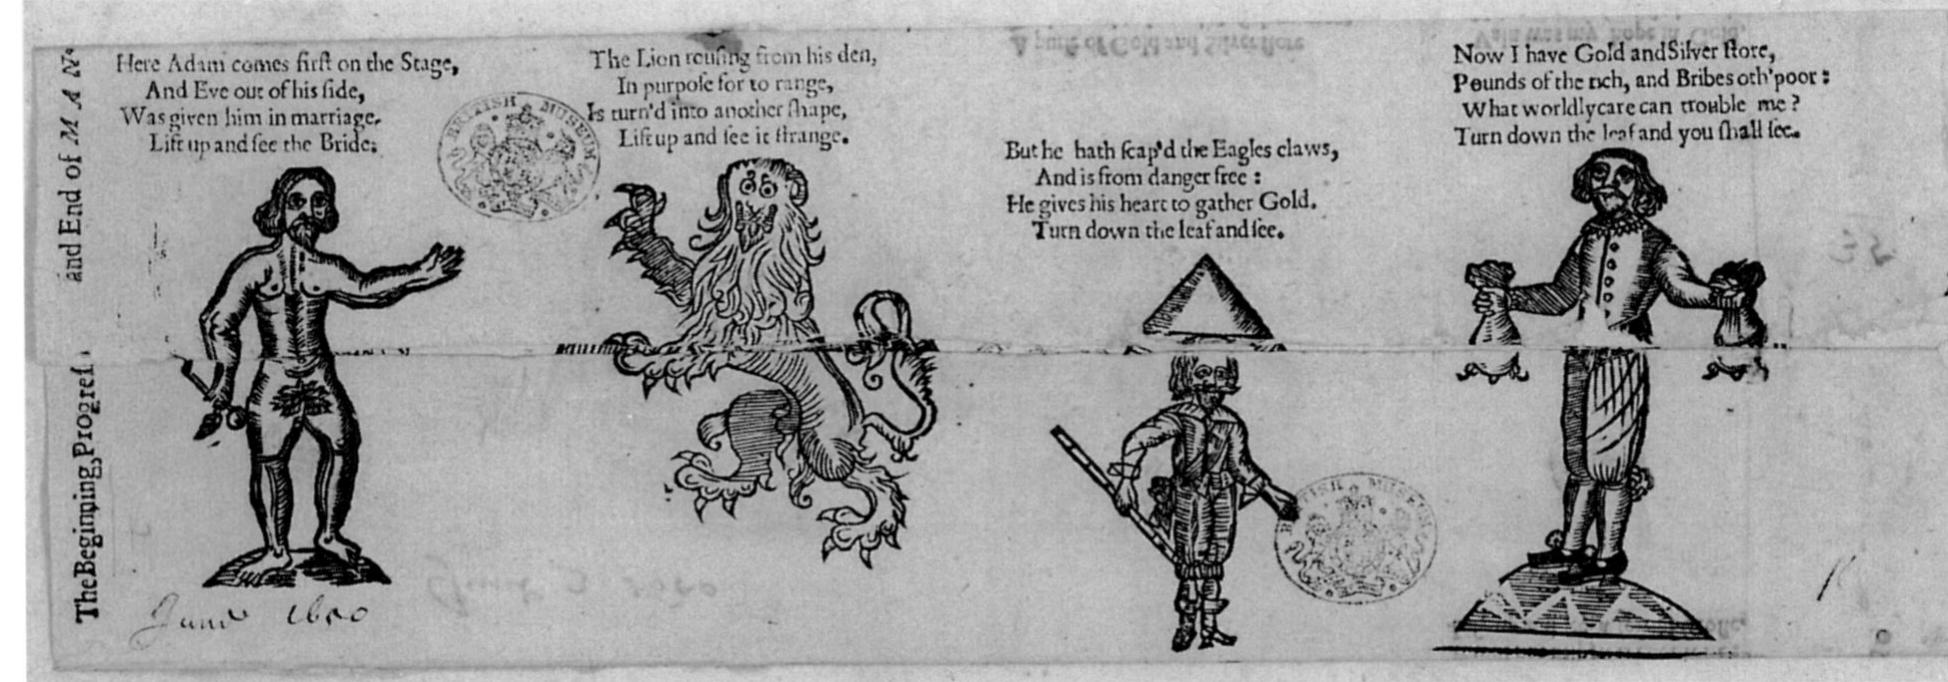 The Beginning, Progress and End of MAN
Here Adam comes firſt on the Stage,
And Eve out of his ſide,
Was given him in marriage,
Lift up and ſee the Bride;
The Lion rouſing from his den,
In purpoſe for to range,
Is turn'd into another ſhape,
Lift up and ſee it ſtrange.
A purſe of Gold and Silver ſtore
But he hath ſcap'd the Eagles claws,
And is from danger free:
He gives his heart to gather Gold.
Turn down the leaf and ſee.
Vain was my hope in Gold,
Now I have Gold and Silver ſtore,
Pounds of the rich, and Bribes oth' poor:
What worldly care can trouble me?
Turn down the leaf and you ſhall ſee.
BRITISH MUSEUM
BRITISH MUSEUM
June 1650